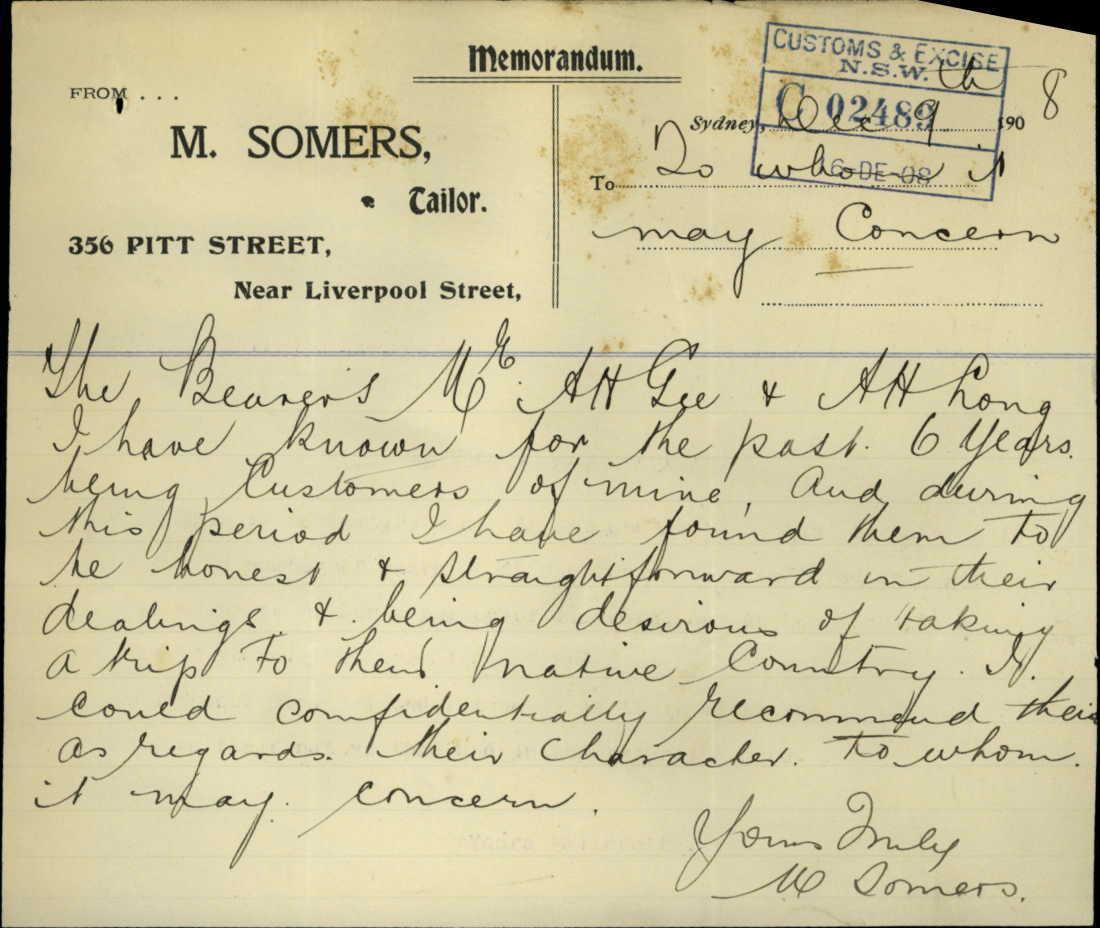 Memorandum.
CUSTOMS & EXCISE
N.S.W.
C 02489
6-DE-08
FROM ...
M. SOMERS,
Tailor.
356 PITT STREET,
Near Liverpool Street,
Sydney, Dec 9th 1908
To To whom it
may Concern
The Bearer's Mr. AH Gee & AH Long
I have known for the past. 6 Years.
being Customers of mine, And during
this period I have found them to
be honest & straightforward in their
dealings. & being desirous of taking
a trip to their native Country. I.
could confidentially recommend their
as regards. their Character. to whom.
it may. concern.
Yours Truly
M Somers.